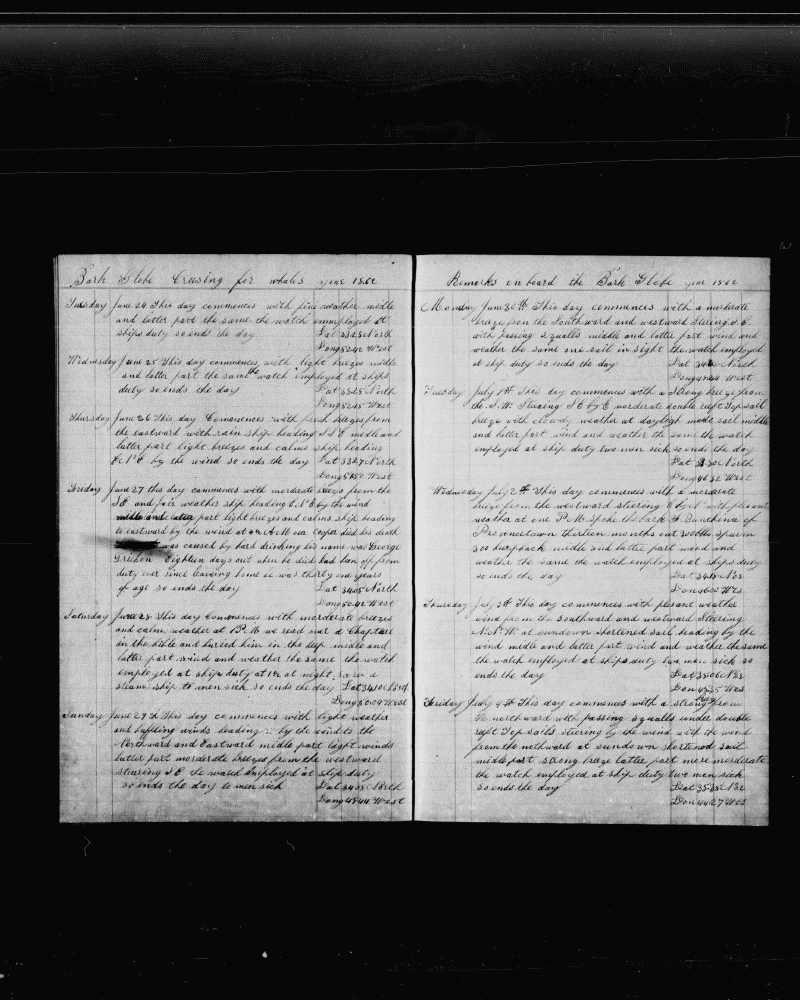 Bark Globe Crusing for whales year 1862
Tuesday June 24 This day commences with fine weather midle
and latter part the same the watch emmployed at
ships duty so ends the day Lat 3325 North
Long 5242 West
Wednesday June 25 This day commences with light breezes midle
and latter part the same the watch employed at ships
duty so ends the day Lat 3325 North
Long West
Thursday June 26 This day Commences with fresh breezes from
the eastward with rain ship heading S S E midle and
latter part light breezes and calms ship heading
E N E by the wind so ends the day Lat 3327 North
Long West
Friday June 27 this day commences with morderate breezes from the
S E and fair weather ship heading E N E by the wind
midle and latter part light breezes and calms ship heading
to eastward by the wind at A M our Cooper died his death
was caused by hard drinking his name was George
Eighteen days out when he died had ben off from
duty ever since leaving home he was thirty one years
of age so ends the day Lat 3405 North
Long 5042 West
Saturday June 28 This day Commences with morderate breezes
and calm weather at 1 P.M we read over a Chapture
in the bible and buried him in the deep midle and
latter part wind and weather the same the watch
employed at ship duty at 12 at night saw a
steam ship to men sick so ends the day Lat 3410 Nord
Long 5004 West
Sunday June 29th This day commences with light weather
and baffling winds heading by the wind to the
Northward and Eastward midle part light winds
latter part morderate breezes from the westward
stearing S E the watch employed at ship duty
so ends the day to men sick Lat 3408 North
Long 4844 West
Remarks on board the Bark Globe year 1862
Monday June 30th This day commences with a morderate
breze from the Southward and westward Steering S E
with passing squalls midle and latter part wind and
weather the same one sail in sight the watch employed
at ship duty so ends the day Lat North
Long West
Tuesday July 1st This day commences with a Strong breeze from
the S.W. Stearing S E by E morderate double reeft Topsail
breeze with clowdy weather at dayligh made sail midle
and latter part wind and weather the same the watch
employed at ship duty two men sick so ends the day
Lat 3330 North
Long 4632 West
Wednesday July 2th This day commences with a morderate
breze from the westward steering E by N with plesant
weather at one P.M. Spoke the bark of
Provencetown thirteen months out 300bbs Spurm
300 humpback midle and latter part wind and
weather the same the watch employed at ships duty
so ends the day Lat Nor
Long Wes
Thursday July 3th This day commences with plesant weather
wind from the Southward and westward Steering
N.N.W. at sundown shortened sail heading by the
wind midle and latter part wind and weather the same
the watch employed at ships duty two men sick so
ends the day Lat 3506 Nor
Lon 4535 Wes
Friday July 4th This day commences with a strong breze from
the northward with passing squalls under double
reeft Top sails stering by the wind with the wind
from the nothward at sundown shortened sail
midle part strong breze latter part more morderate
the watch employed at ship duty two men sick
so ends the day Lat 3535 Nor
Lon 4427 Wes